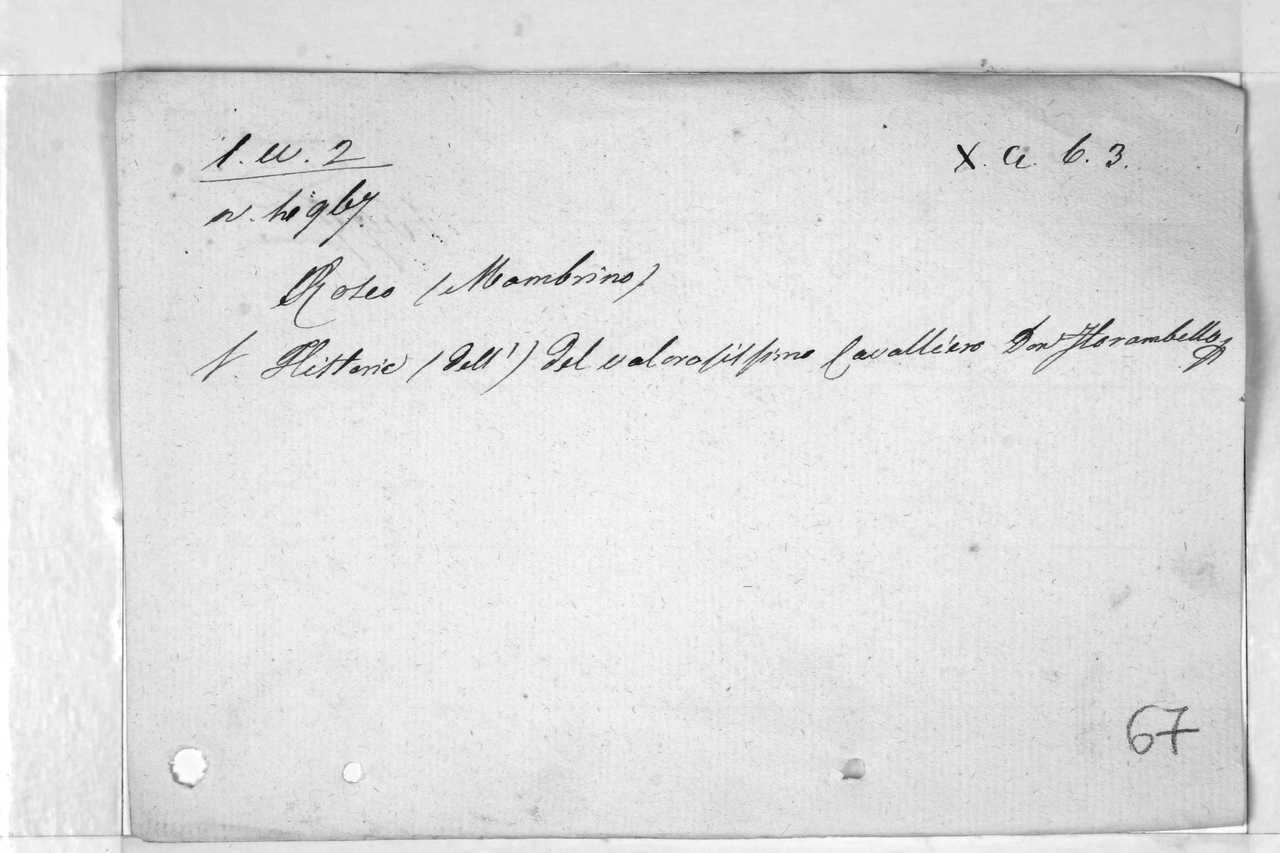 1. w. 2
X. a. 6. 3.
Roseo (Mambrino)
Historie (dell') del valorosissimo Cavalliero Don Florambello
67